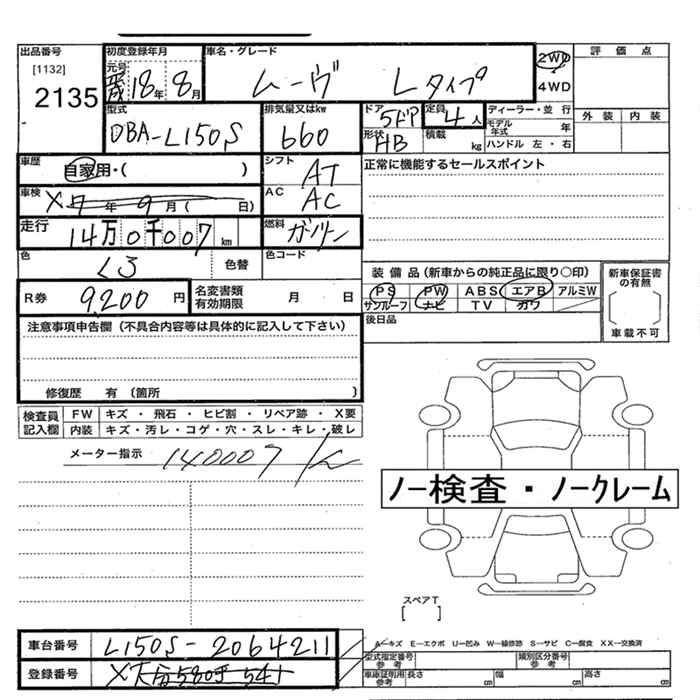 出品番号 初度登録年月 車名・グレード 評価点
[1132] 元号 平成 18年 8月 ムーヴ Lタイプ 2WD
2135 4WD
型式 排気量又はkw ドア 定員 ディーラー・並行 外装 内装
DBA-L150S 660 5ドア 4人 モデル年式 年
形状 HB 積載 kg ハンドル 左・右
車歴 自家用・( ) シフト AT 正常に機能するセールスポイント
車検 X 7年 9月( 日) AC AC
走行 14万0千007km 燃料 ガソリン
色 色替 色コード
装備品(新車からの純正品に限り○印) 新車保証書の有無
R券 9,200円 名変書類有効期限 月 日 PS PW ABS エアB アルミW
サンルーフ ナビ TV カワ 車載不可
注意事項申告欄(不具合内容等は具体的に記入して下さい) 後日品
修復歴 有 (箇所 )
検査員記入欄 FW キズ・飛石・ヒビ割・リペア跡・X要
内装 キズ・汚レ・コゲ・穴・スレ・キレ・破レ
メーター指示 140007
ノー検査・ノークレーム
スペアT
[ ]
車台番号 L150S-2064211 A-キズ E-エクボ U-凹み W-補修跡 S-サビ C-腐食 XX-交換済
型式指定番号 参考 類別区分番号 参考
登録番号 車庫証明用 参考 長さ cm 幅 cm 高さ cm